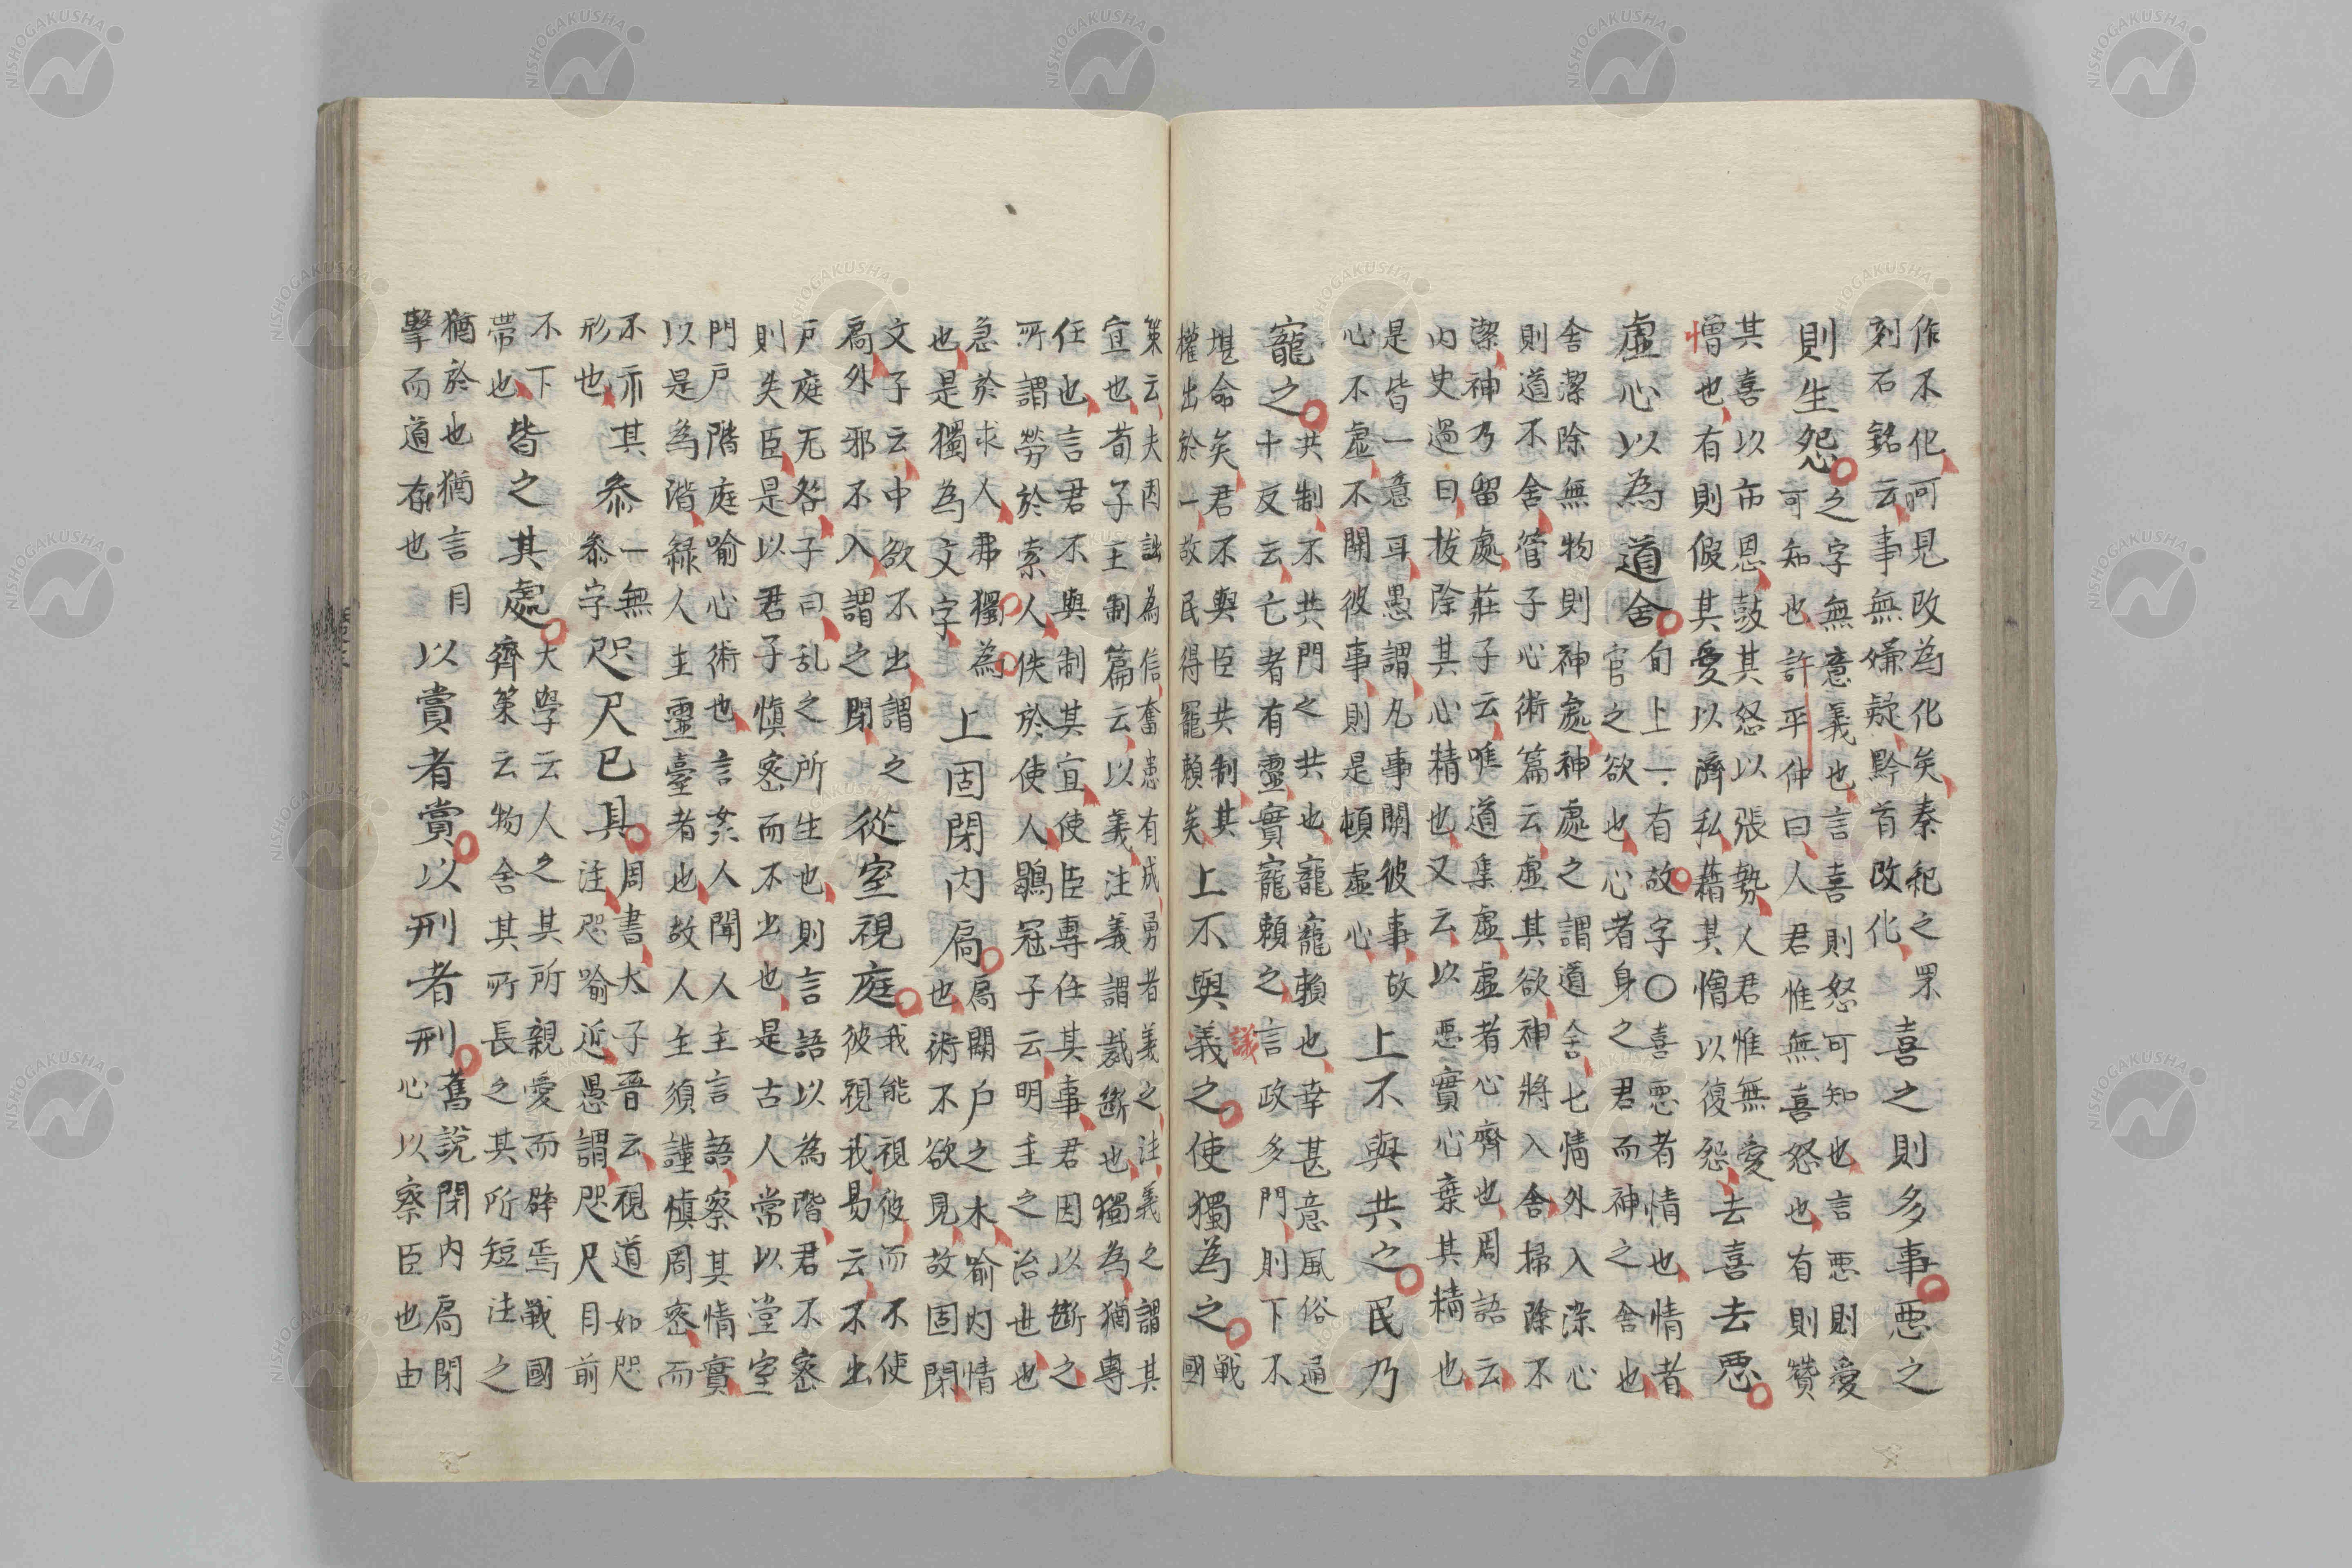 作不化呵見改為化矣秦紀之罘
刻石銘云事無嫌疑黔首改化
喜之則多事惡之
則生怨
之字無意義也言喜則怒可知也言悪則愛
可知也許平仲曰人君惟無喜怒也有則贊
其喜以市恩鼓其怒以張勢人君惟無愛
憎也有則假其愛以濟私藉其憎以復怨
去喜去悪
虛心以為道舍
旬上一有故字〇喜悪者情也情者
官之欲也心者身之君而神之舍也
舍潔除無物則神處神處之謂道舍七情外入染心
則道不舍管子心術篇云虛其欲神將入舍掃除不
潔神乃留處莊子云唯道集虛虛者心齊也周語云
内史過曰拔除其心精也又云以悪實心棄其精也
是皆一意耳愚謂凡事關彼事故
心不虛不關彼事則是頓虛心
上不與共之民乃
寵之
共制不共門之共也寵寵賴也幸甚意風俗通
十反云亡者有靈實寵賴之言政多門則下不
堪命矣君不與臣共制其
權出於一故民得寵賴矣
上不與義之使獨為之
議
戦
國
策云夫因詘為信奮患有成勇者義之注義之謂其
宜也荀子王制篇云以義注義謂裁斷也獨為猶專
任也言君不與制其宜使臣專任其事君因以斷之
所謂勞於索人佚於使人鶡冠子云明主之治世也
急於求人弗獨為
也是獨為文字
上固閉内扃
扃關戶之木喻内情
也術不欲見故固閉
文子云中欲不出謂之
扃外邪不入謂之閉
從室視庭
我能視彼而不使
彼視我易云不出
戸庭无咎子曰乱之所生也則言語以為階君不密
則失臣是以君子慎密而不出也是古人常以堂室
門戸階庭喻心術也言姦人聞人主言語察其情實
以是為階緣人主靈臺者也故人主須謹慎周密而
不示其
形也
參
一無
參字
咫尺已具
周書太子晉云視道如咫
注咫喻近愚謂咫尺目前
不下
帯也
皆之其處
大學云人之其所親愛而辟焉戰國
齊策云物舍其所長之其所短注之
猶於也猶言目
擊而道存也
以賞者賞以刑者刑
舊説閉内扃閉
心以察臣也由